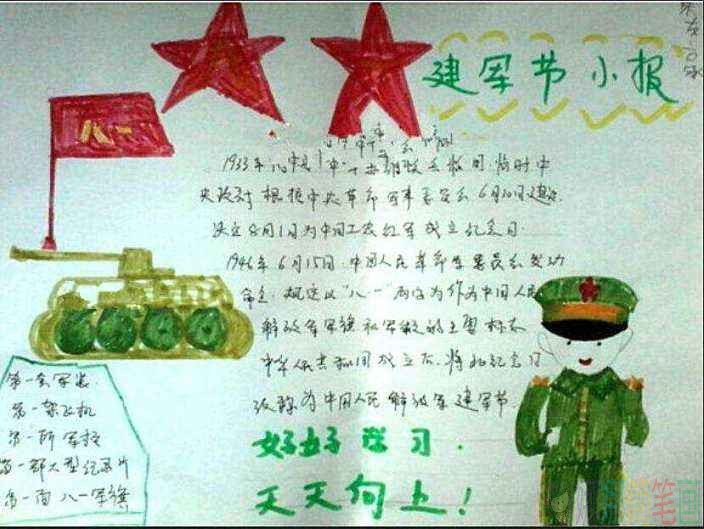 建军节小报
八一
1933年
央政府根据中央革命军事委员会6月30日建议
决定8月1日为中国工农红军成立纪念日
1946年6月15日中国人民革命军事委员会发功
命令，规定以"八一"两字为作为中国人民
解放军军旗和军徽的主要标志
中华人民共和国成立后，将此纪念日
改称为中国人民解放军建军节
好好学习.
天天向上！
第一套军装
第一架飞机
第一所军校
第一部大型纪录片
第一面八一军旗